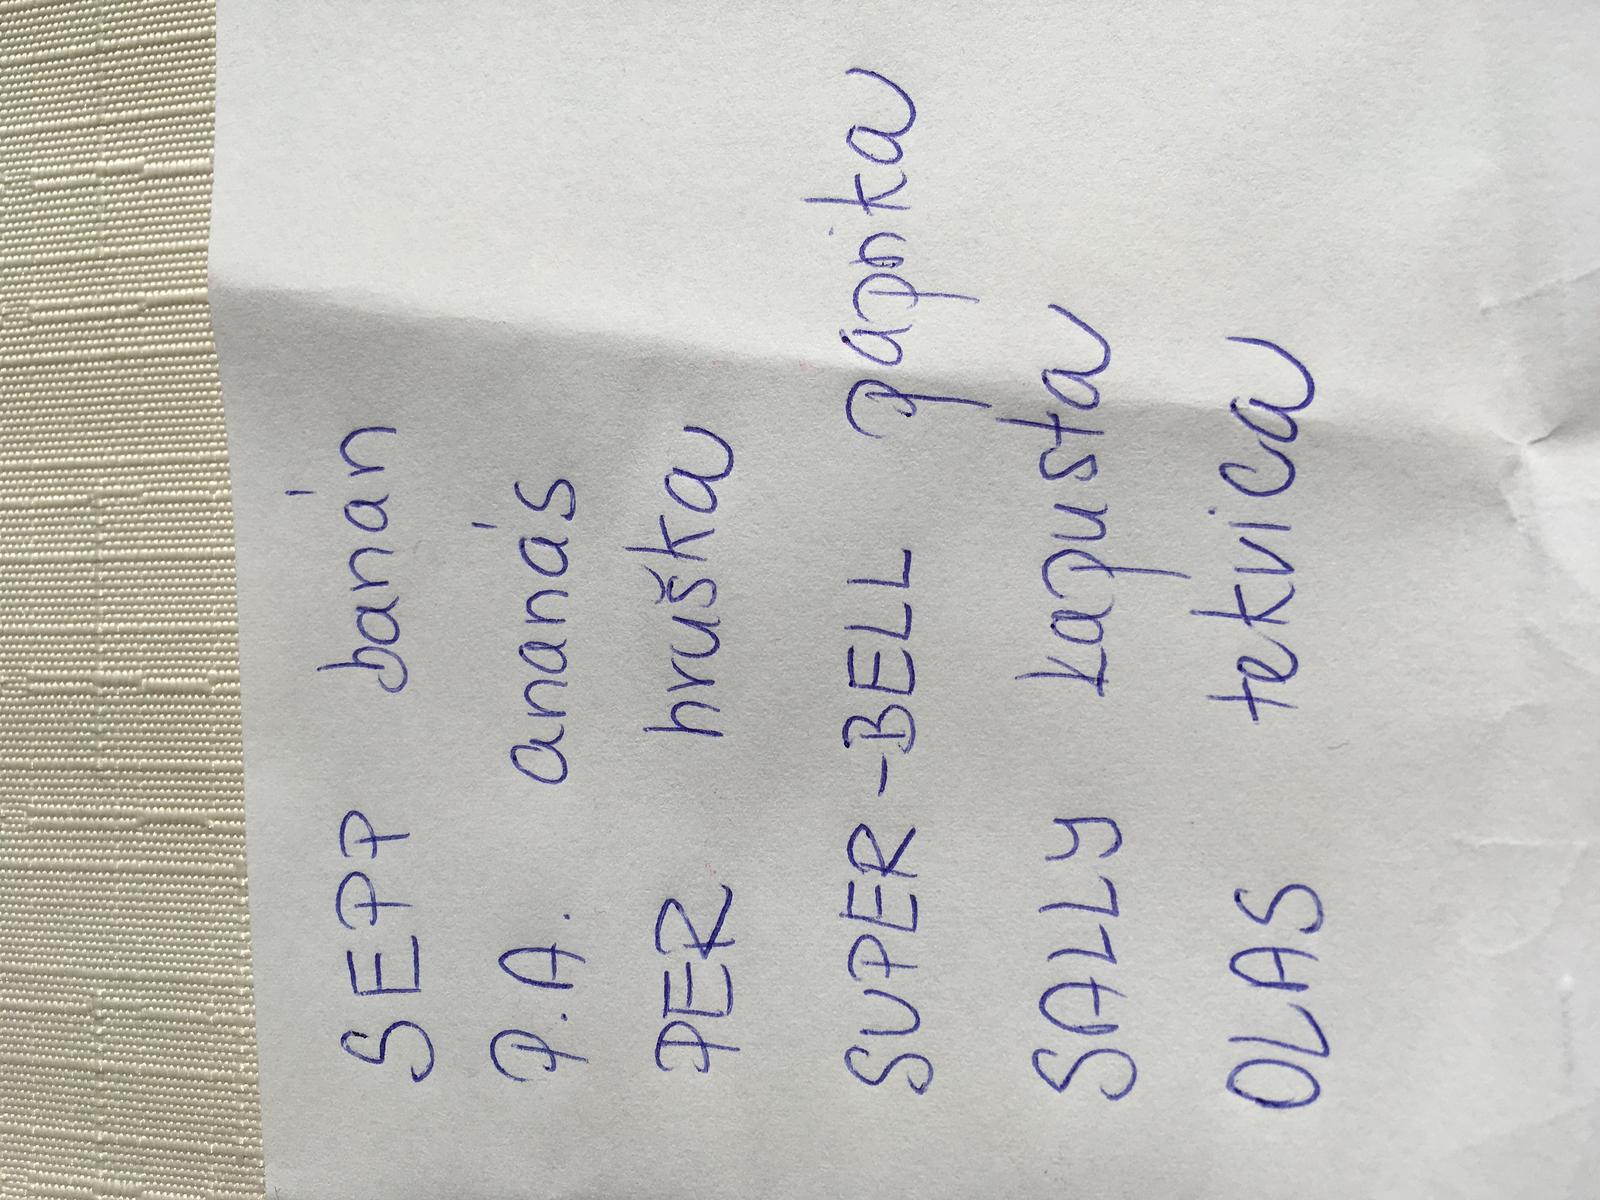 SEPP banán
P.A. ananás
PER hruška
SUPER-BELL paprika
SALLY kapusta
OLAS tekvica